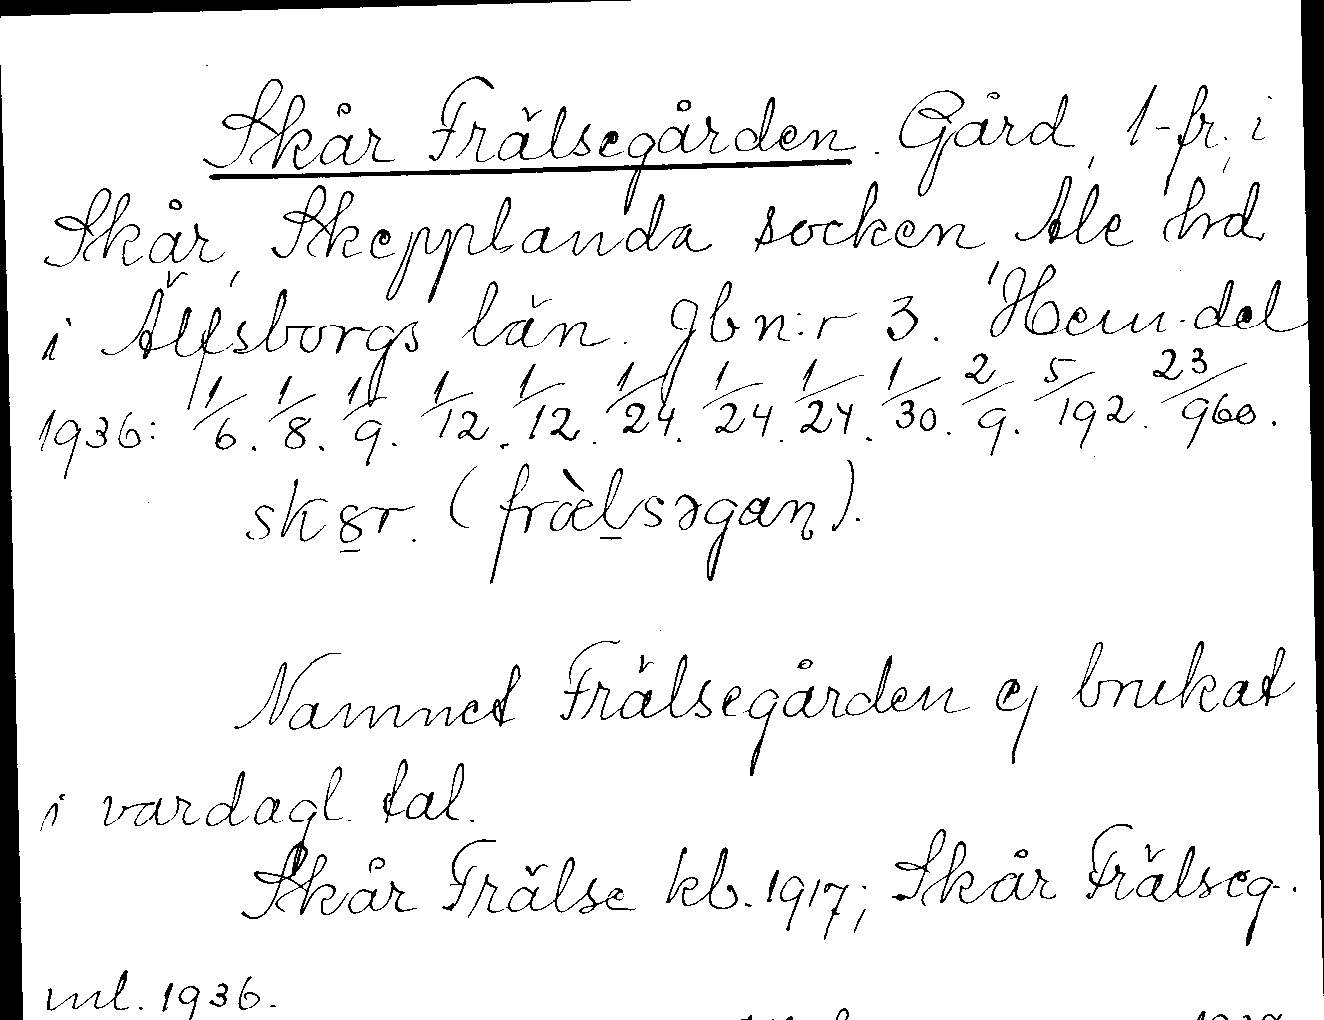 Skår Frälsegården. Gård, 1-fr., i
Skår, Skepplanda socken, Ale hd
i Älfsborgs län. gbn:r 3. Hem.del
1936: 1/6. 1/8. 1/9. 1/12. 1/12. 1/24. 1/24. 1/24. 1/30. 2/9. 5/192. 23/960.
sk8̲r. (fràɛl̲səgaɳ).
Namnet Frälsegården ej brukat
i vardagl. tal.
Skår Frälse kb. 1917; Skår Frälseg.
ml. 1936.